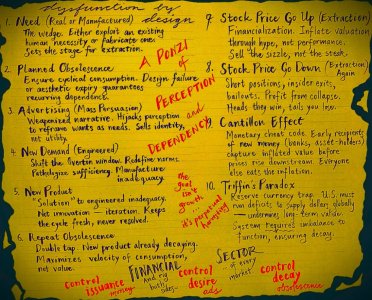 dysfunction by design
1. Need (Real or Manufactured)
The wedge. Either exploit an existing
human necessity or fabricate one.
Sets the stage for extraction.
2. Planned Obsolescence
Ensure cyclical consumption. Design failure
or aesthetic expiry guarantees
recurring dependence.
3. Advertising (Mass Persuasion)
Weaponized narrative. Hijacks perception
to reframe wants as needs. Sells identity,
not utility.
4. New Demand (Engineered)
Shift the Overton window. Redefine norms.
Pathologize sufficiency. Manufacture
inadequacy.
5. New Product
"Solution" to engineered inadequacy.
Not innovation — iteration. Keeps
the cycle fresh, never resolved.
6. Repeat Obsolescence
Double tap. New product already decaying.
Maximizes velocity of consumption,
not value.
A PONZI
of
PERCEPTION
and
DEPENDENCY
the
goal
isn't
growth
it's perpetual
harvesting
7 Stock Price Go Up (Extraction)
Financialization. Inflate valuation
through hype, not performance.
Sell the sizzle, not the steak.
8. Stock Price Go Down (Extraction)
Again
Short positions, insider exits,
bailouts. Profit from collapse.
Heads they win, tails you lose.
9 Cantillon Effect
Monetary cheat code. Early recipients
of new money (banks, asset-holders)
capture inflated value before
prices rise downstream. Everyone
else eats the inflation.
10. Triffin's Paradox
Reserve currency trap. U.S. must
run deficits to supply dollars globally
— undermines long-term value.
System requires imbalance to
function, ensuring decay.
FINANCIAL
both
sides-
SECTOR
of every
market
control
issuance
money
control
desire
ads
control
decay
obsolescence